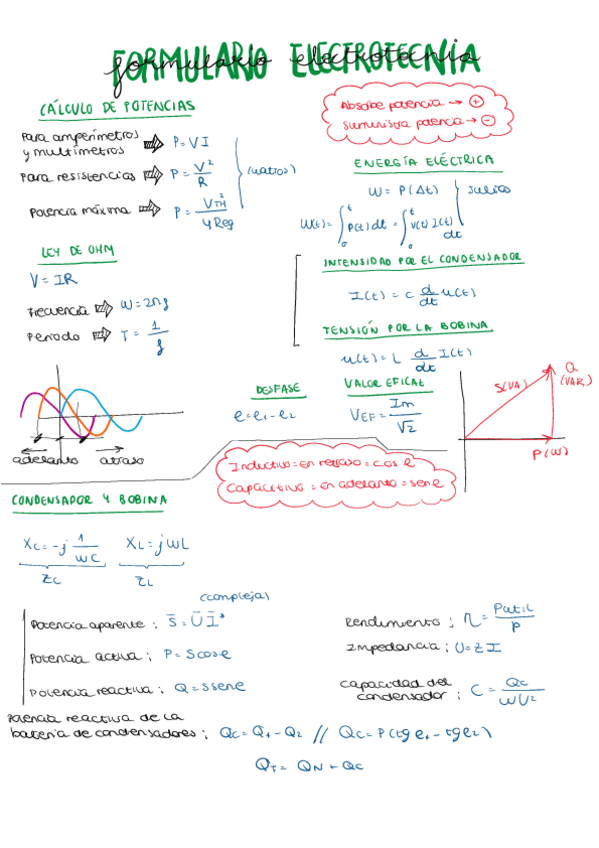 FORMULARIO ELECTROTECNIA
formulario electrotecnia
CÁLCULO DE POTENCIAS
Para amperímetros
y multímetros ⇒ P = V I
Para resistencias ⇒ P = V² / R
Potencia máxima ⇒ P = V_TH² / 4 Req
(watios)
Absorbe potencia → +
Suministra potencia → −
ENERGÍA ELÉCTRICA
W = P(Δt)
Julios
W(t) = ∫₀ᵗ P(t) dt = ∫₀ᵗ V(t) I(t) dt
LEY DE OHM
V = IR
Frecuencia ⇒ W = 2πf
Periodo ⇒ T = 1 / f
INTENSIDAD POR EL CONDENSADOR
I(t) = C d/dt u(t)
TENSIÓN POR LA BOBINA
u(t) = L d/dt I(t)
adelanto atraso
DESFASE
e = e₁ - e₂
VALOR EFICAZ
V_EF = Im / √2
S(VA)
Q
(VAR)
P(W)
Inductivo = en retraso = cos e
Capacitivo = en adelanto = sen e
CONDENSADOR Y BOBINA
Xc = -j 1 / WC
XL = jWL
Zc
ZL
(compleja)
Potencia aparente : S̄ = Ū Ī*
Potencia activa : P = S cos e
Potencia reactiva : Q = S sen e
Rendimiento : η = Putil / P
Impedancia : U = Z I
Capacidad del
condensador : C = Qc / WU²
Potencia reactiva de la
batería de condensadores : Qc = Q₁ - Q₂ // Qc = P(tg e₁ - tg e₂)
Q_T = Q_N + Qc